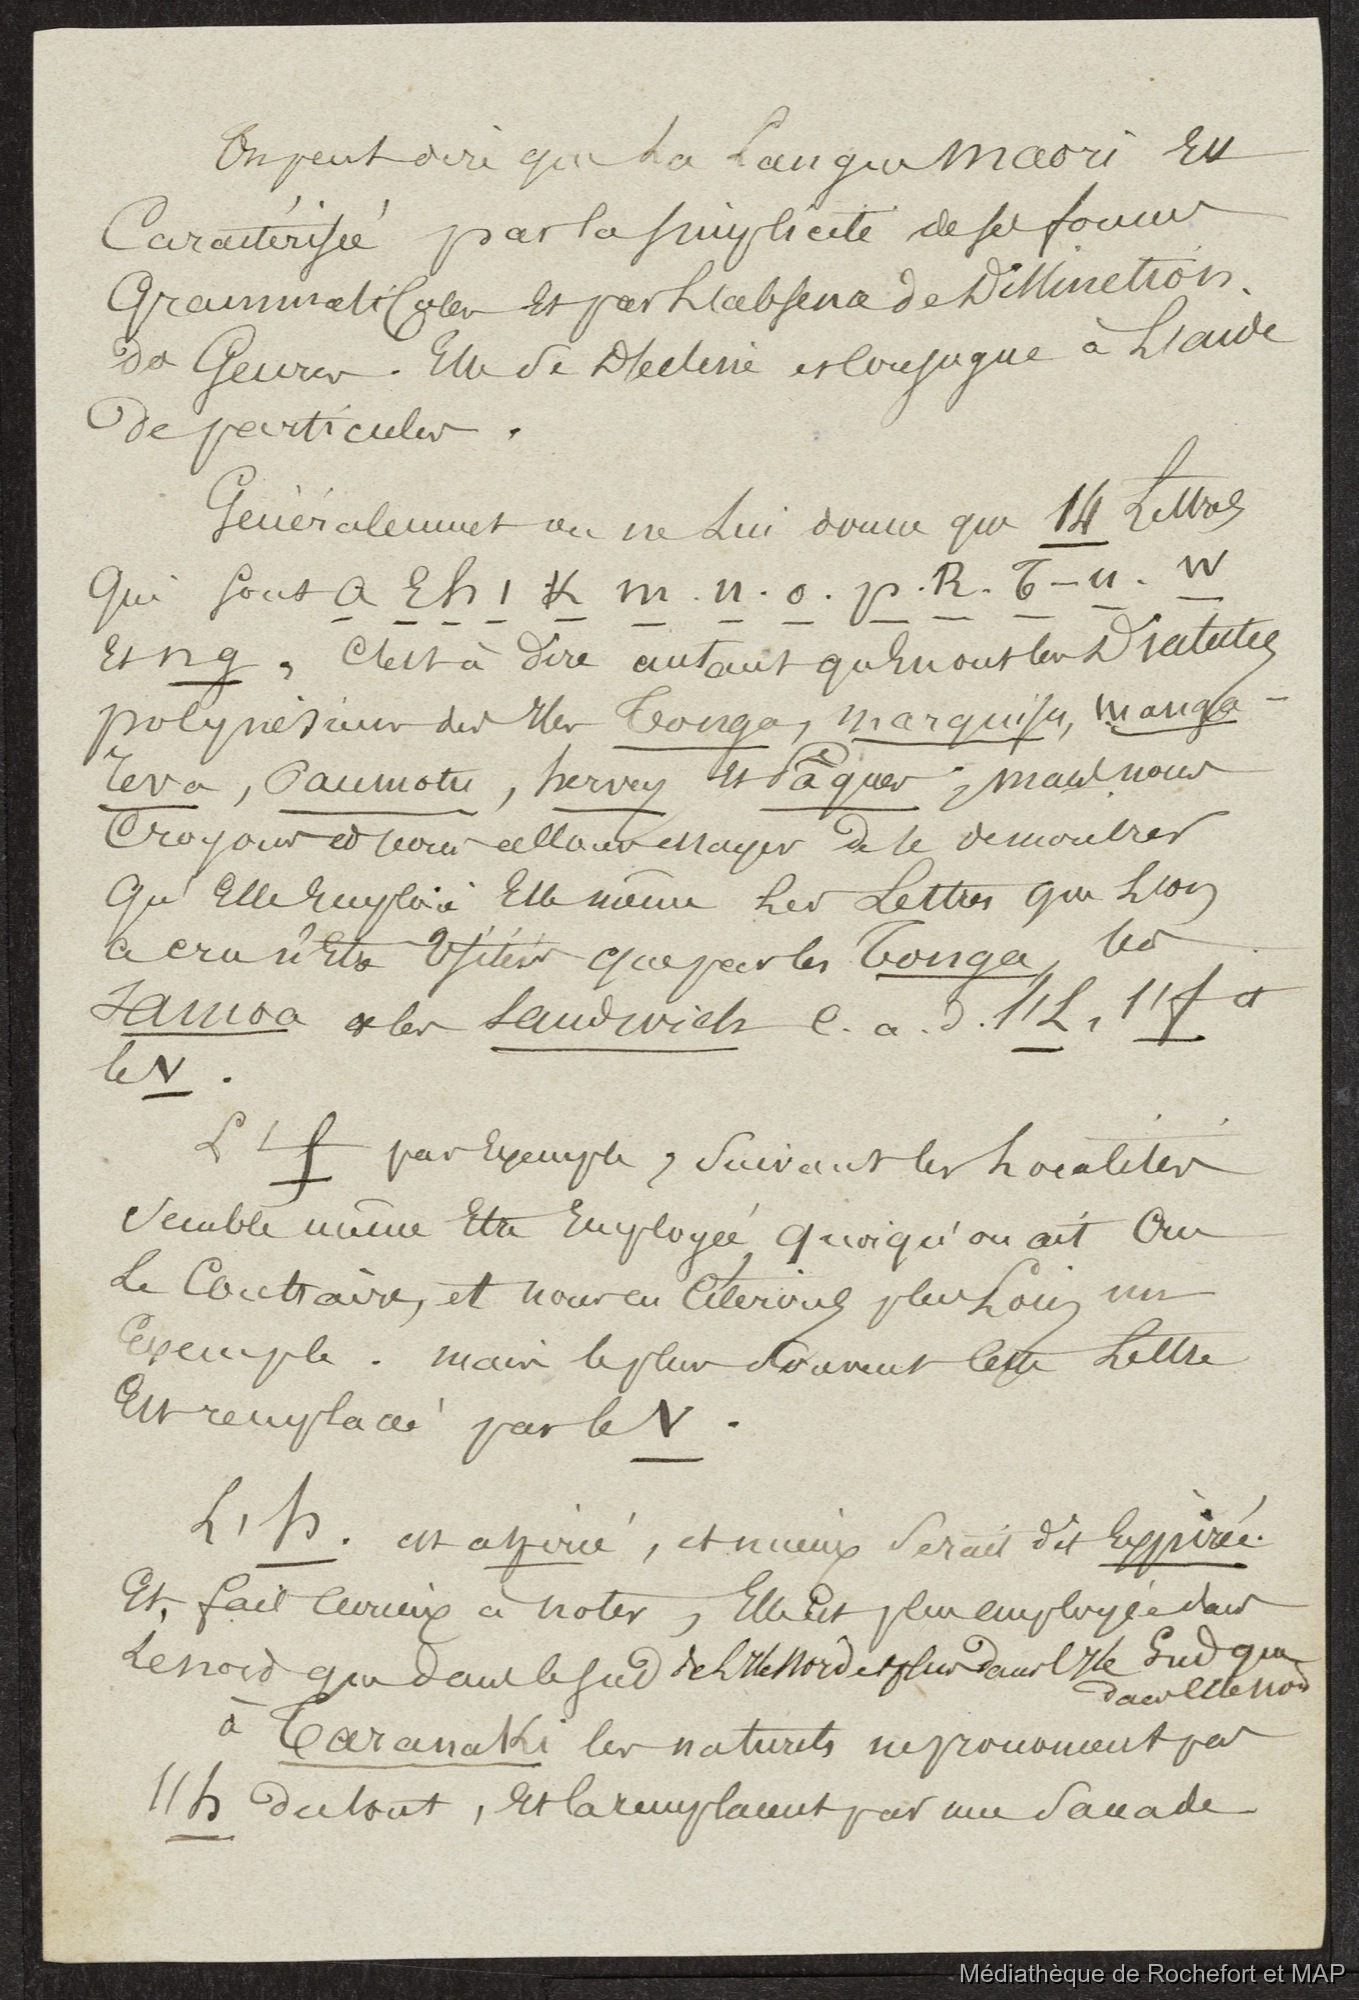 On peut dire que la Langue maori Est
Caractérisée par la simplicité de ses formes
Grammaticales Et par l'absence de Distinction
de Genres. Elle se Décline et Conjugue à l'aide
de particules.
Généralement on ne lui donne que 14 Lettres
qui sont a E h i K m . n . o . p . R . T - u . W
Et ng, C'est à dire autant qu'en ont les Dialectes
polynésiens des Iles Tonga, marquises, manga-
reva, Paumotu, hervey et Pâques, mais nous
Croyons et nous allons essayer de le demontrer
qu'Elle Emploie Elle même les Lettres que l'on
a cru n'Etre Usitées que par les Tonga, les
Samoa et les Sandwich C. a. d. l'L, l'f et
le V.
L'f par Exemple, suivant les localités
semble même Etre Employée, quoiqu'on ait Cru
le Contraire, et nous en Citerons plus Loin un
Exemple. mais le plus souvent cette Lettre
Est remplacée par le V.
L'h. est aspirée, et mieux serait dit Expirée.
Et, fait curieux à noter, Elle est plus employée dans
le nord que dans le sud de l'Ile Nord et plus dans l'Ile Sud que
dans l'Ile nord
à Taranaki les naturels ne prononcent pas
l'h du tout, Et la remplacent par une sorte de
Médiathèque de Rochefort et MAP